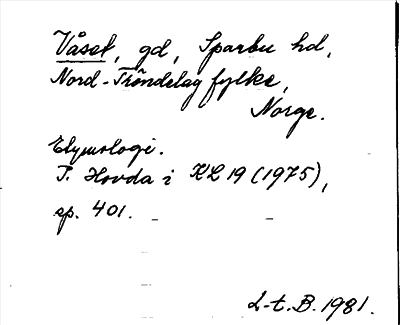 Våset, gd, Sparbu hd,
Nord-Tröndelag fylke,
Norge.
Etymologi.
P. Hovda i KL 19 (1975),
sp. 401.
L-t. B. 1981.